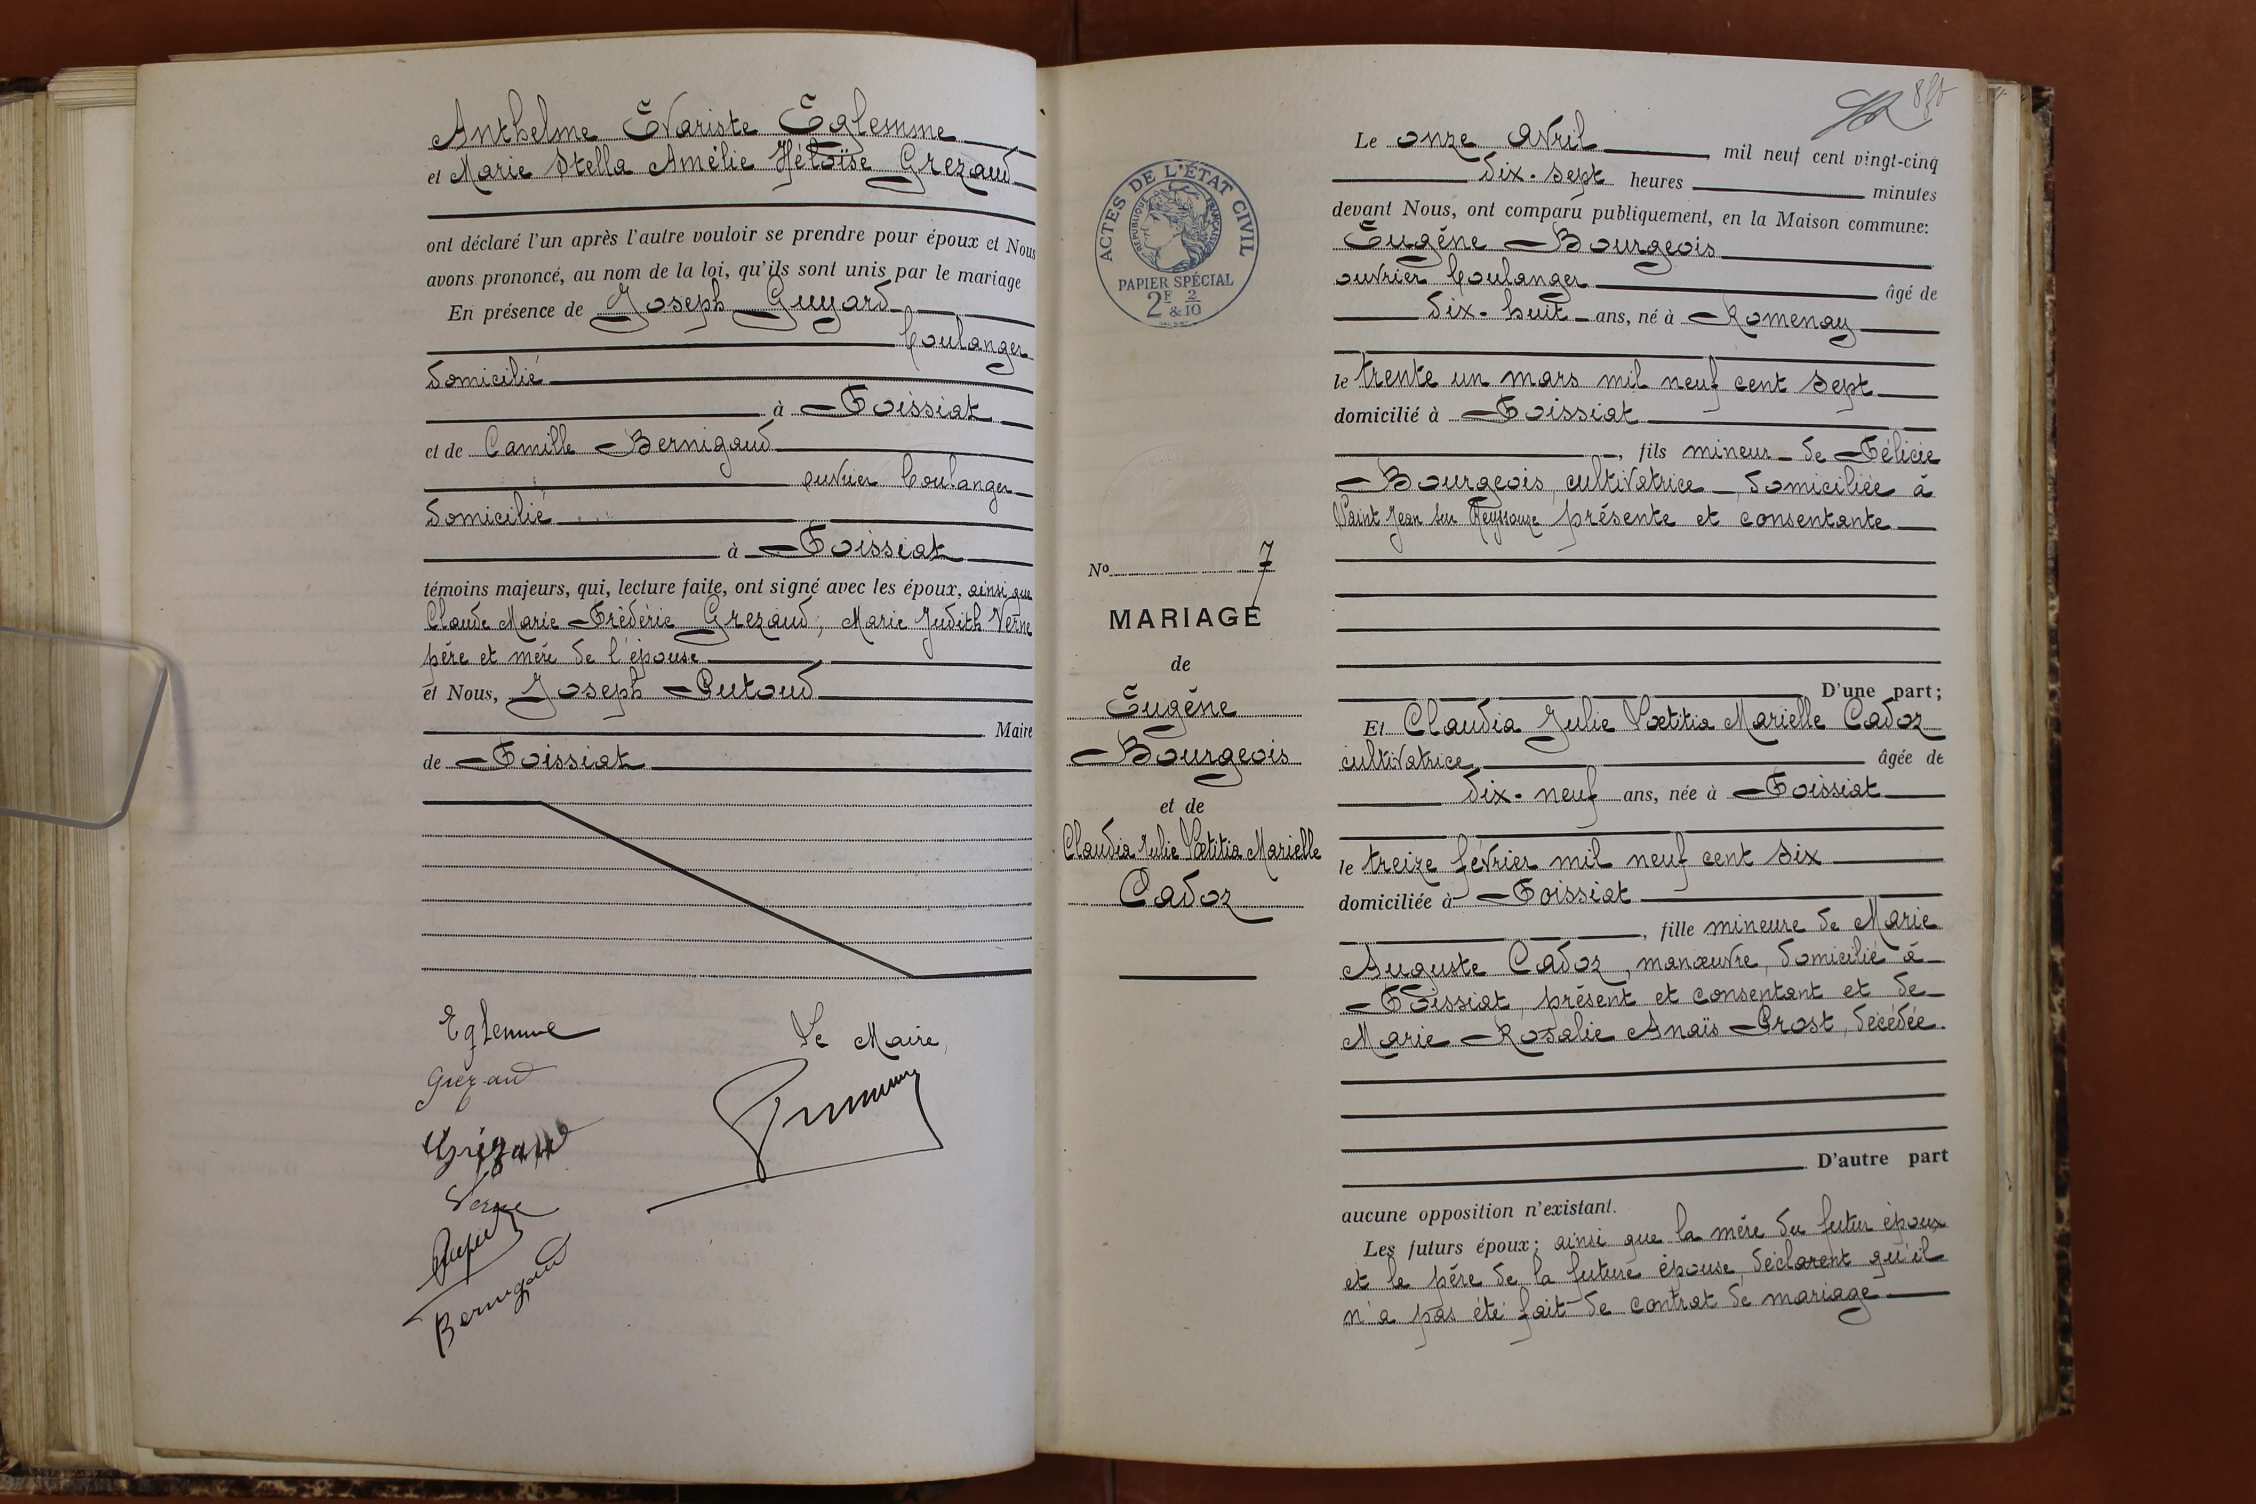 Anthelme Evariste Eglemme
et Marie Stella Amélie Héloïse Grezaud
ont déclaré l'un après l'autre vouloir se prendre pour époux et Nous
avons prononcé, au nom de la loi, qu'ils sont unis par le mariage
En présence de Joseph Guyard
boulanger
domicilié
à Foissiat
et de Camille Bernigaud
ouvrier boulanger
domicilié
à Foissiat
témoins majeurs, qui, lecture faite, ont signé avec les époux, ainsi que
Claude Marie Frédéric Grezaud, Marie Judith Verne
père et mère de l'épouse
et Nous, Joseph Putoud
Maire
de Foissiat
Eglemme
Grezaud
Verne
Bernigaud
Le Maire,
ACTES DE L'ÉTAT CIVIL
RÉPUBLIQUE FRANÇAISE
PAPIER SPÉCIAL
2F & 2/10
No 7
MARIAGE
de
Eugène
Bourgeois
et de
Claudia Julie Lœtitia Marielle
Cadoz
Le onze avril mil neuf cent vingt-cinq
dix-sept heures minutes
devant Nous, ont comparu publiquement, en la Maison commune:
Eugène Bourgeois
ouvrier boulanger âgé de
dix-huit ans, né à Romenay
le trente un mars mil neuf cent sept
domicilié à Foissiat
, fils mineur de Félicie
Bourgeois, cultivatrice, domiciliée à
Saint Jean sur Reyssouze présente et consentante
D'une part;
Et Claudia Julie Lœtitia Marielle Cadoz
cultivatrice âgée de
dix-neuf ans, née à Foissiat
le treize février mil neuf cent six
domiciliée à Foissiat
, fille mineure de Marie
Auguste Cadoz, manœuvre, domicilié à
Foissiat, présent et consentant et de
Marie Rosalie Anaïs Prost, décédée.
D'autre part
aucune opposition n'existant.
Les futurs époux; ainsi que la mère du futur époux
et le père de la future épouse, déclarent qu'il
n'a pas été fait de contrat de mariage